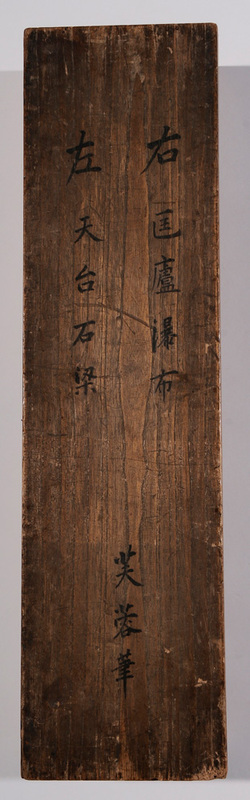 右 匡廬瀑布
左 天台石梁
芙蓉筆